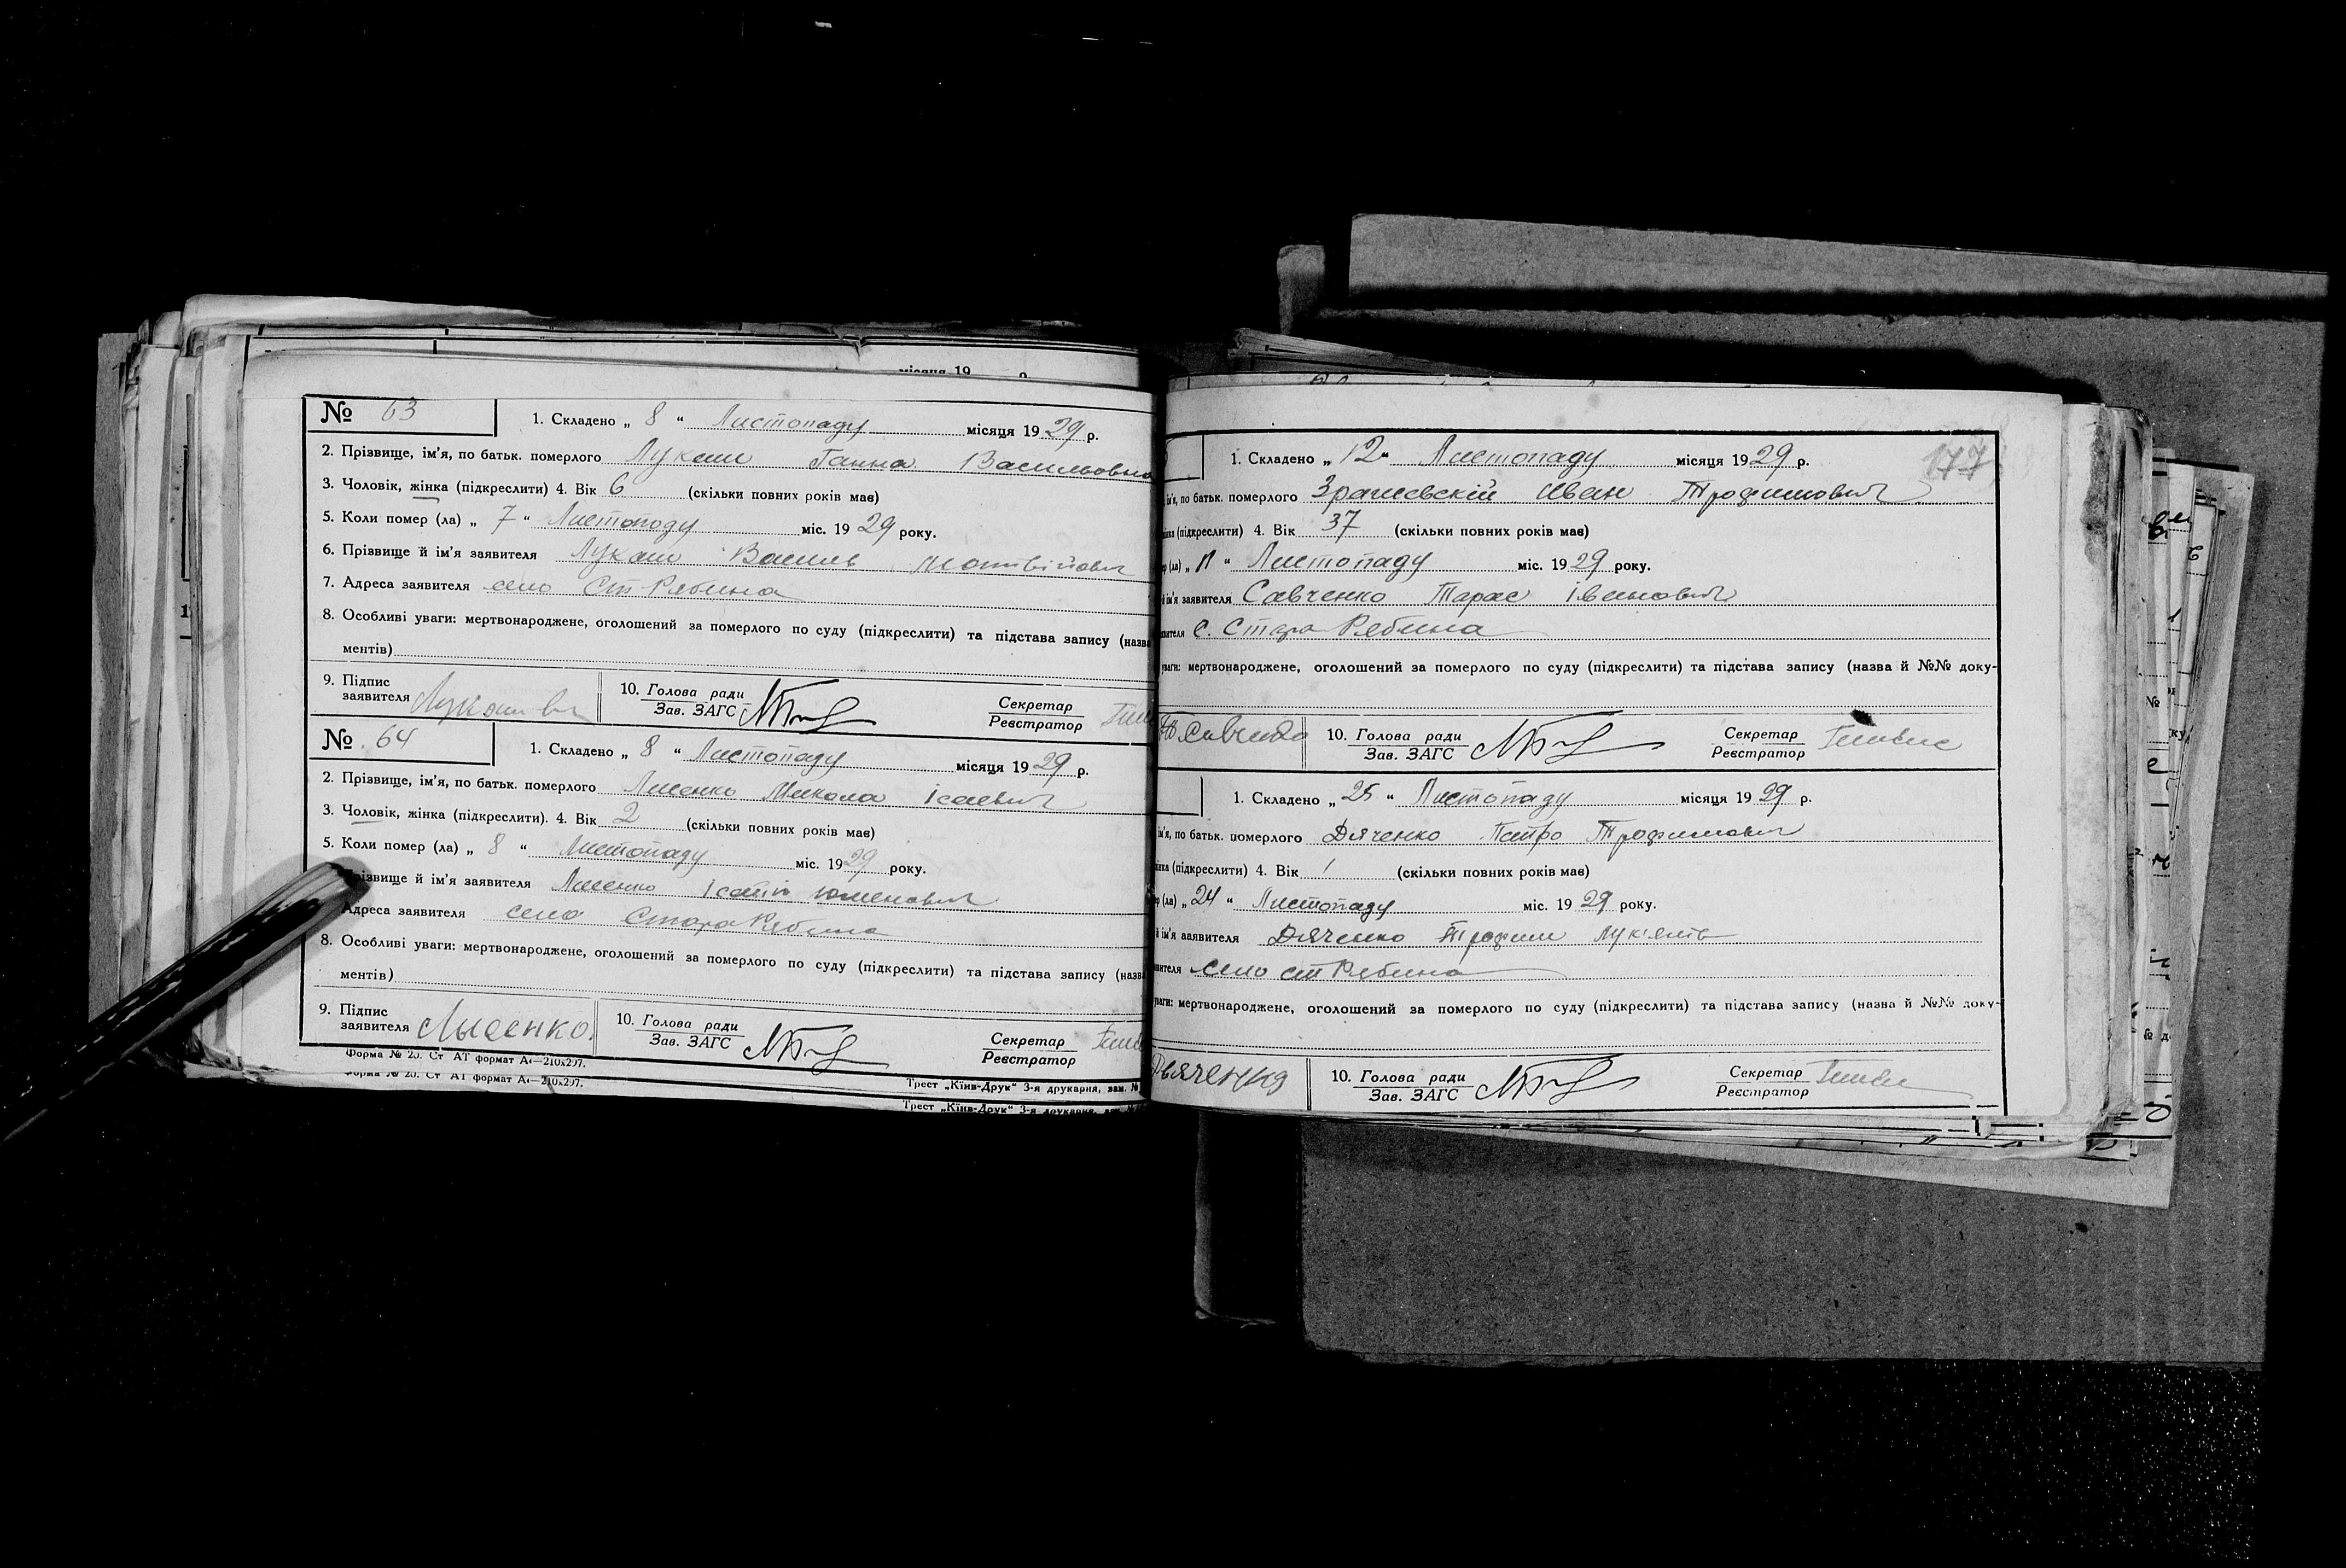 місяця 19 р.
№ 63
1. Складено „ 8 “ Листопаду місяця 1929 р.
2. Прізвище, ім'я, по батьк. померлого Лукаш Ганна Васильовна
3. Чоловік, жінка (підкреслити) 4. Вік 6 (скільки повних років має)
5. Коли помер (ла) „ 7 “ Листопаду міс. 1929 року.
6. Прізвище й ім'я заявителя Лукаш Василь Матвійович
7. Адреса заявителя село Ст Рябина
8. Особливі уваги: мертвонароджене, оголошений за померлого по суду (підкреслити) та підстава запису (назва
ментів)
9. Підпис заявителя Лукаш Ва
10. Голова ради
Зав. ЗАГС
Секретар
Реєстратор
№ 64
1. Складено „ 8 “ Листопаду місяця 1929 р.
2. Прізвище, ім'я, по батьк. померлого Лисенко Микола Ісаєвич
3. Чоловік, жінка (підкреслити). 4. Вік 2 (скільки повних років має)
5. Коли помер (ла) „ 8 “ Листопаду міс. 1929 року.
різвище й ім'я заявителя Лисенко
Адреса заявителя село Стара Рябина
8. Особливі уваги: мертвонароджене, оголошений за померлого по суду (підкреслити) та підстава запису (назва
ментів)
9. Підпис заявителя Лысенко.
10. Голова ради
Зав. ЗАГС
Секретар
Реєстратор
Форма № 20. Ст АТ формат А4—210x297.
Трест „Київ-Друк“ 3-я друкарня, зам. №
Форма № 20. Ст АТ формат А4—210x297.
Трест „Київ-Друк“ 3-я друкарня, зам. №
177
1. Складено „ 12 “ Листопаду місяця 1929 р.
ім'я, по батьк. померлого Зрагиевскій Иван Трофимович
інка (підкреслити) 4. Вік 37 (скільки повних років має)
ер (ла) „ 11 “ Листопаду міс. 1929 року.
й ім'я заявителя Савченко Тарас Іванович
явителя с. Стара Рябина
уваги: мертвонароджене, оголошений за померлого по суду (підкреслити) та підстава запису (назва й №№ доку-
Савченко
10. Голова ради
Зав. ЗАГС
Секретар
Реєстратор
1. Складено „ 25 “ Листопаду місяця 1929 р.
ім'я, по батьк. померлого Дяченко Петро Трофимович
інка (підкреслити) 4. Вік 1 (скільки повних років має)
ер (ла) „ 24 “ Листопаду міс. 1929 року.
й ім'я заявителя Дяченко Трофим
явителя село ст Рябина
уваги: мертвонароджене, оголошений за померлого по суду (підкреслити) та підстава запису (назва й №№ доку-
10. Голова ради
Зав. ЗАГС
Секретар
Реєстратор